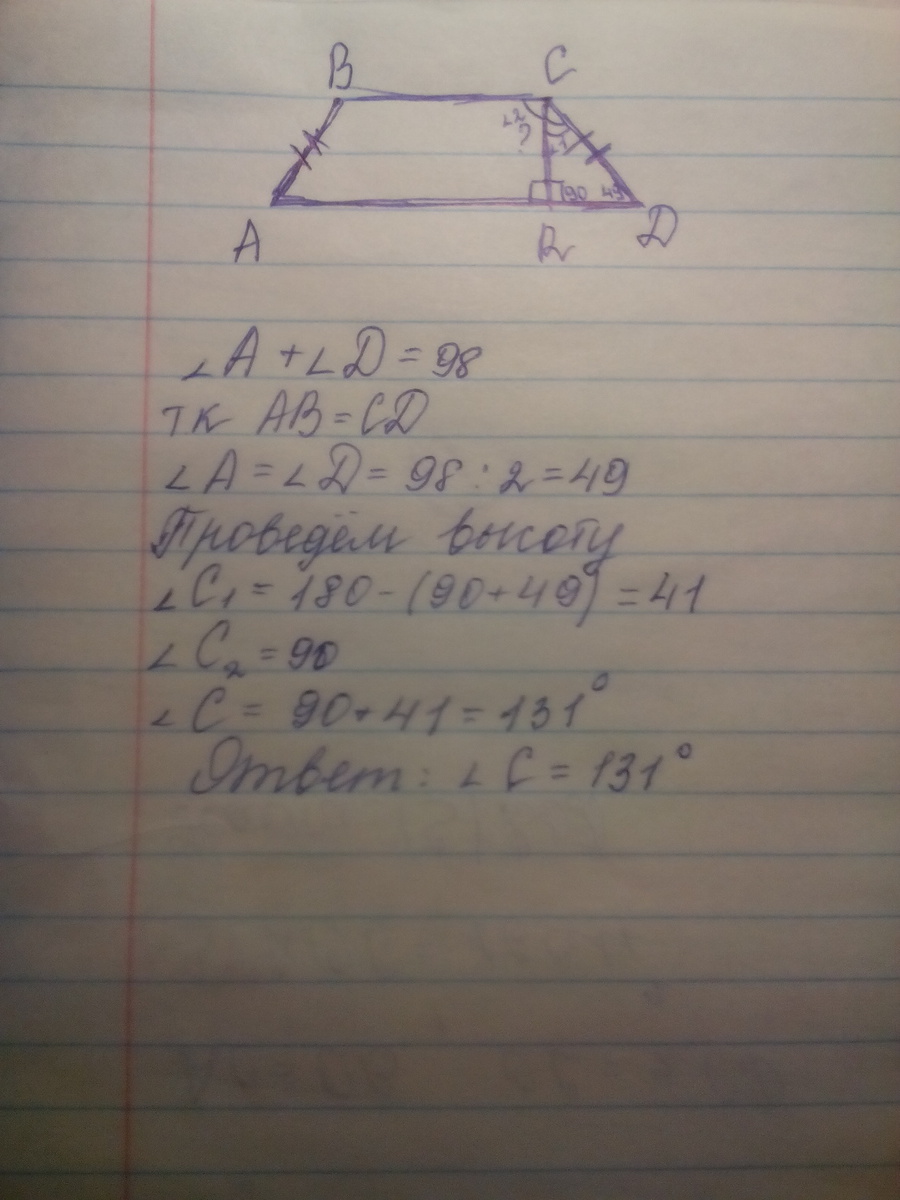 B C
∠2
?
∠1
90 49
A R D
∠A + ∠D = 98
тк AB = CD
∠A = ∠D = 98 : 2 = 49
Проведём высоту
∠C₁ = 180 - (90 + 49) = 41
∠C₂ = 90
∠C = 90 + 41 = 131°
Ответ: ∠C = 131°